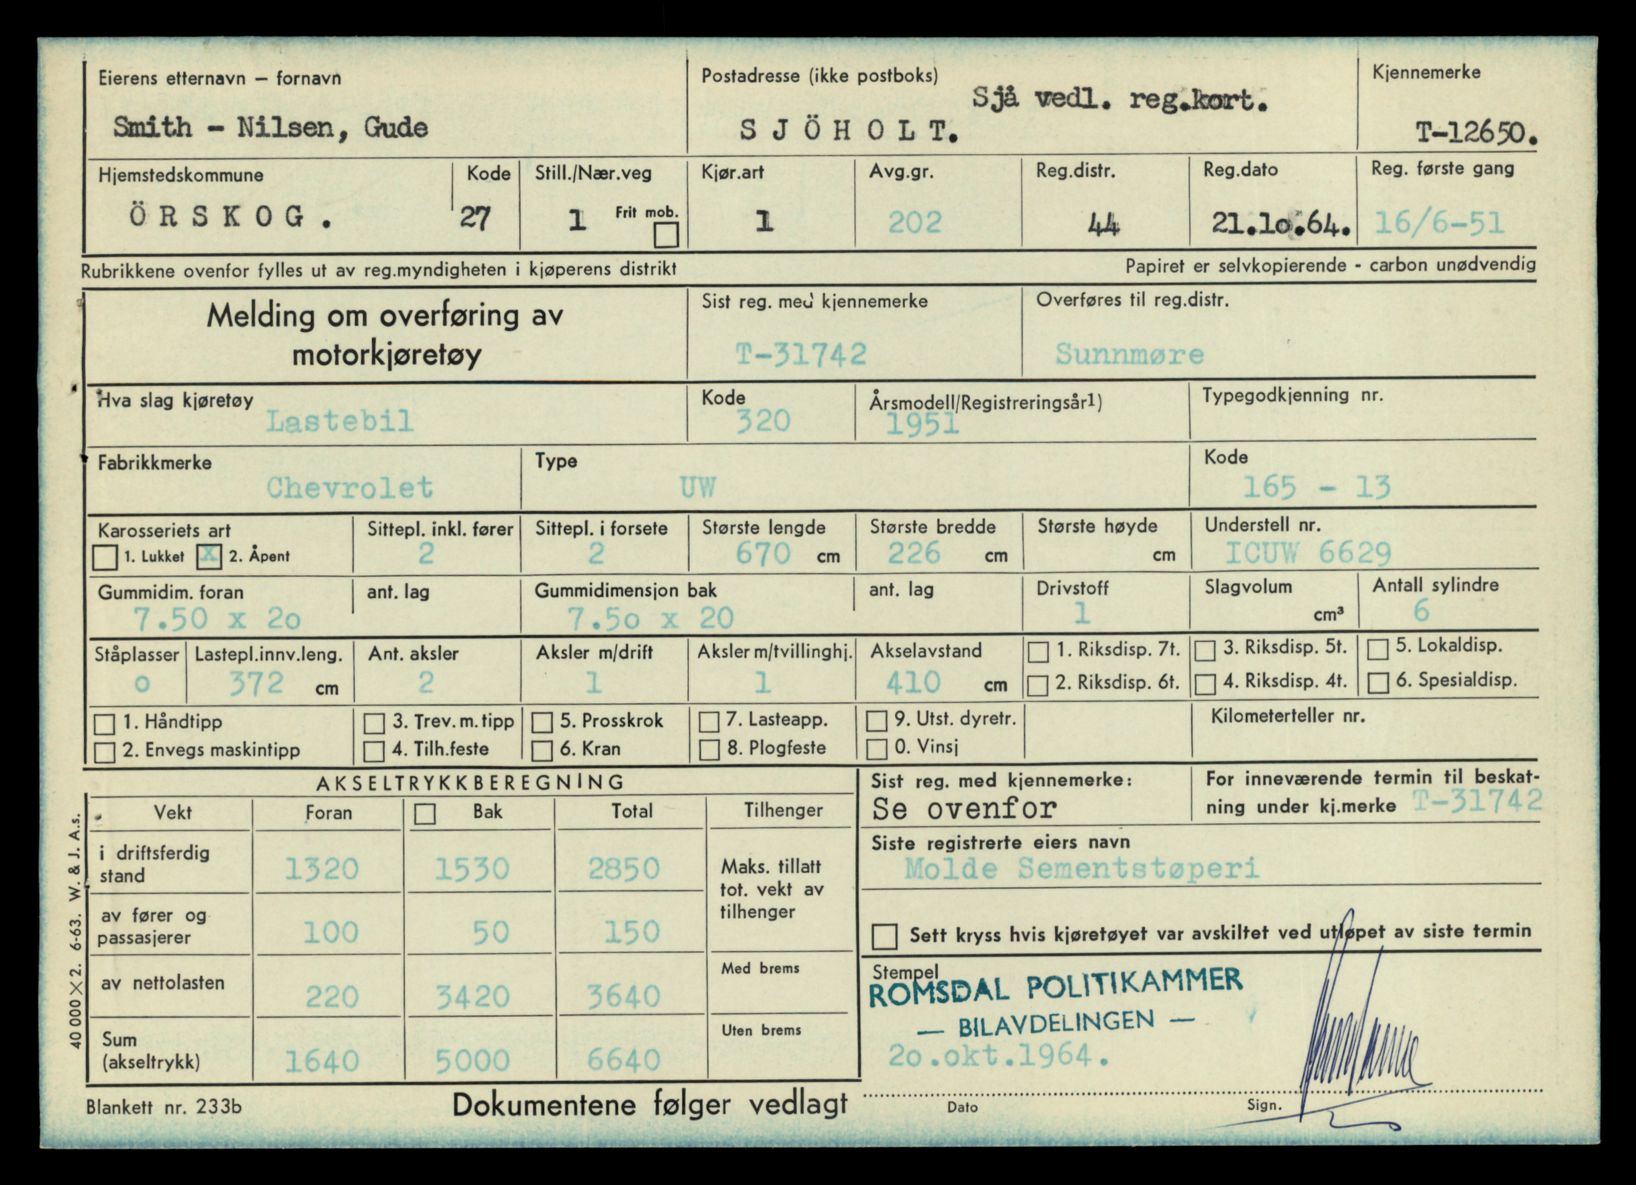 Eierens etternavn – fornavn
Smith - Nilsen, Gude
Postadresse (ikke postboks)
Sjå vedl. reg.kort.
SJÖHOLT.
Kjennemerke
T-12650.
Hjemstedskommune
ÖRSKOG.
Kode
27
Still./Nær.veg
1
Frit mob.
Kjør.art
1
Avg.gr.
202
Reg.distr.
44
Reg.dato
21.10.64.
Reg. første gang
16/6-51
Rubrikkene ovenfor fylles ut av reg.myndigheten i kjøperens distrikt
Papiret er selvkopierende - carbon unødvendig
Melding om overføring av
motorkjøretøy
Sist reg. med kjennemerke
T-31742
Overføres til reg.distr.
Sunnmøre
Hva slag kjøretøy
Lastebil
Kode
320
Årsmodell/Registreringsår1)
1951
Typegodkjenning nr.
Fabrikkmerke
Chevrolet
Type
UW
Kode
165 - 13
Karosseriets art
1. Lukket X 2. Åpent
Sittepl. inkl. fører
2
Sittepl. i forsete
2
Største lengde
670 cm
Største bredde
226 cm
Største høyde
cm
Understell nr.
ICUW 6629
Gummidim. foran
7.50 x 2o
ant. lag
Gummidimensjon bak
7.5o x 20
ant. lag
Drivstoff
1
Slagvolum
cm³
Antall sylindre
6
Ståplasser
o
Lastepl.innv.leng.
372 cm
Ant. aksler
2
Aksler m/drift
1
Aksler m/tvillinghj.
1
Akselavstand
410 cm
1. Riksdisp. 7t.
2. Riksdisp. 6t.
3. Riksdisp. 5t.
4. Riksdisp. 4t.
5. Lokaldisp.
6. Spesialdisp.
1. Håndtipp
2. Envegs maskintipp
3. Trev. m. tipp
4. Tilh.feste
5. Prosskrok
6. Kran
7. Lasteapp.
8. Plogfeste
9. Utst. dyretr.
0. Vinsj
Kilometerteller nr.
AKSELTRYKKBEREGNING
Vekt Foran Bak Total Tilhenger
i driftsferdig
stand
1320 1530 2850
Maks. tillatt
tot. vekt av
tilhenger
av fører og
passasjerer
100 50 150
av nettolasten
220 3420 3640
Med brems
Sum
(akseltrykk)
1640 5000 6640
Uten brems
Sist reg. med kjennemerke:
Se ovenfor
For inneværende termin til beskat-
ning under kj.merke T-31742
Siste registrerte eiers navn
Molde Sementstøperi
Sett kryss hvis kjøretøyet var avskiltet ved utløpet av siste termin
Stempel
ROMSDAL POLITIKAMMER
— BILAVDELINGEN —
2o.okt.1964.
Dato
Sign.
Blankett nr. 233b
Dokumentene følger vedlagt
40 000 × 2. 6-63. W. & J. A.s.